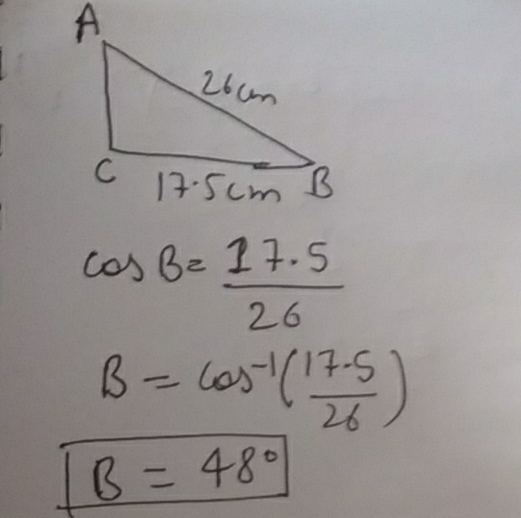 A
26cm
C
17.5cm
B
cos B = 17.5/26
B = cos⁻¹(17.5/26)
B = 48°